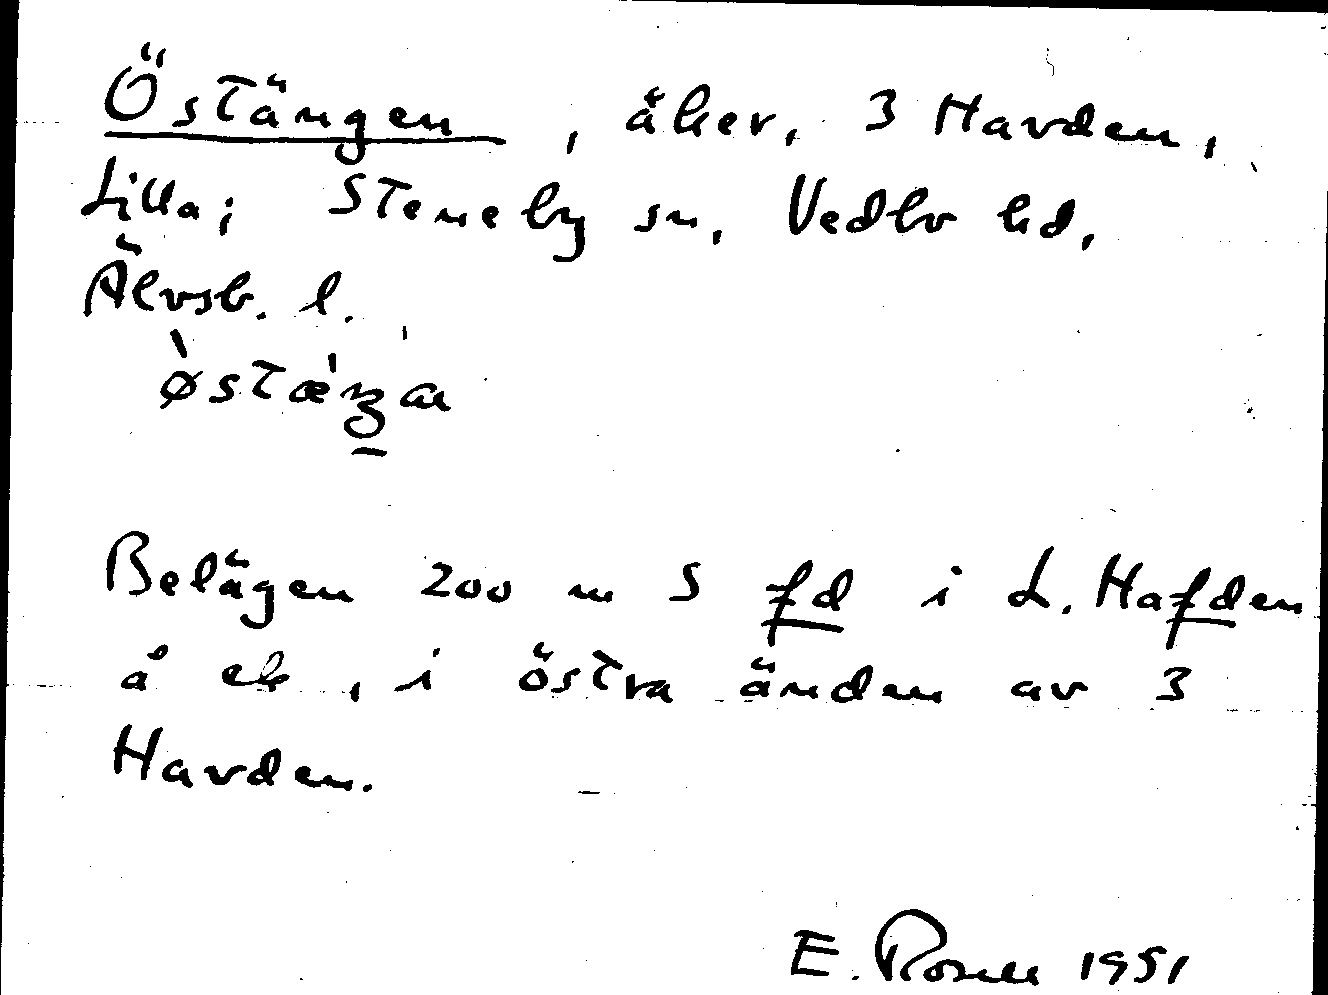 Östängen, åker, 3 Havden,
Lilla; Steneby sn, Vedbo hd,
Älvsb. l.
Belägen 200 m S fd i L. Hafden
å ek, i östra änden av 3
Havden.
E. Rosell 1951